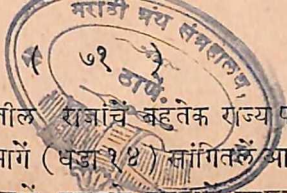 मराठी ग्रंथ संग्रहालय,
( ७१ )
ठाणें
तील राजांचें बहुतेक राज्य
मागें ( धडा १४ ) सांगितलें